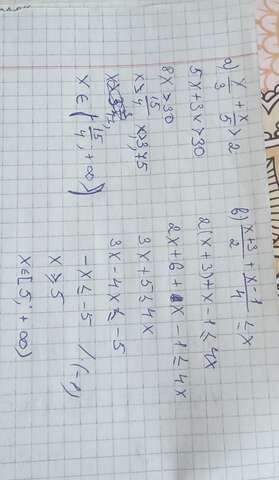 а) x/3 + x/5 > 2
5x + 3x > 30
8x > 30
x > 15/4
x ∈ (15/4, +∞)
б) x+3/2 + x-1/4 ≤ x
2(x+3) + x - 1 ≤ 4x
2x + 6 + x - 1 ≤ 4x
3x + 5 ≤ 4x
3x - 4x ≤ -5
-x ≤ -5 / (-1)
x ≥ 5
x ∈ [5; +∞)